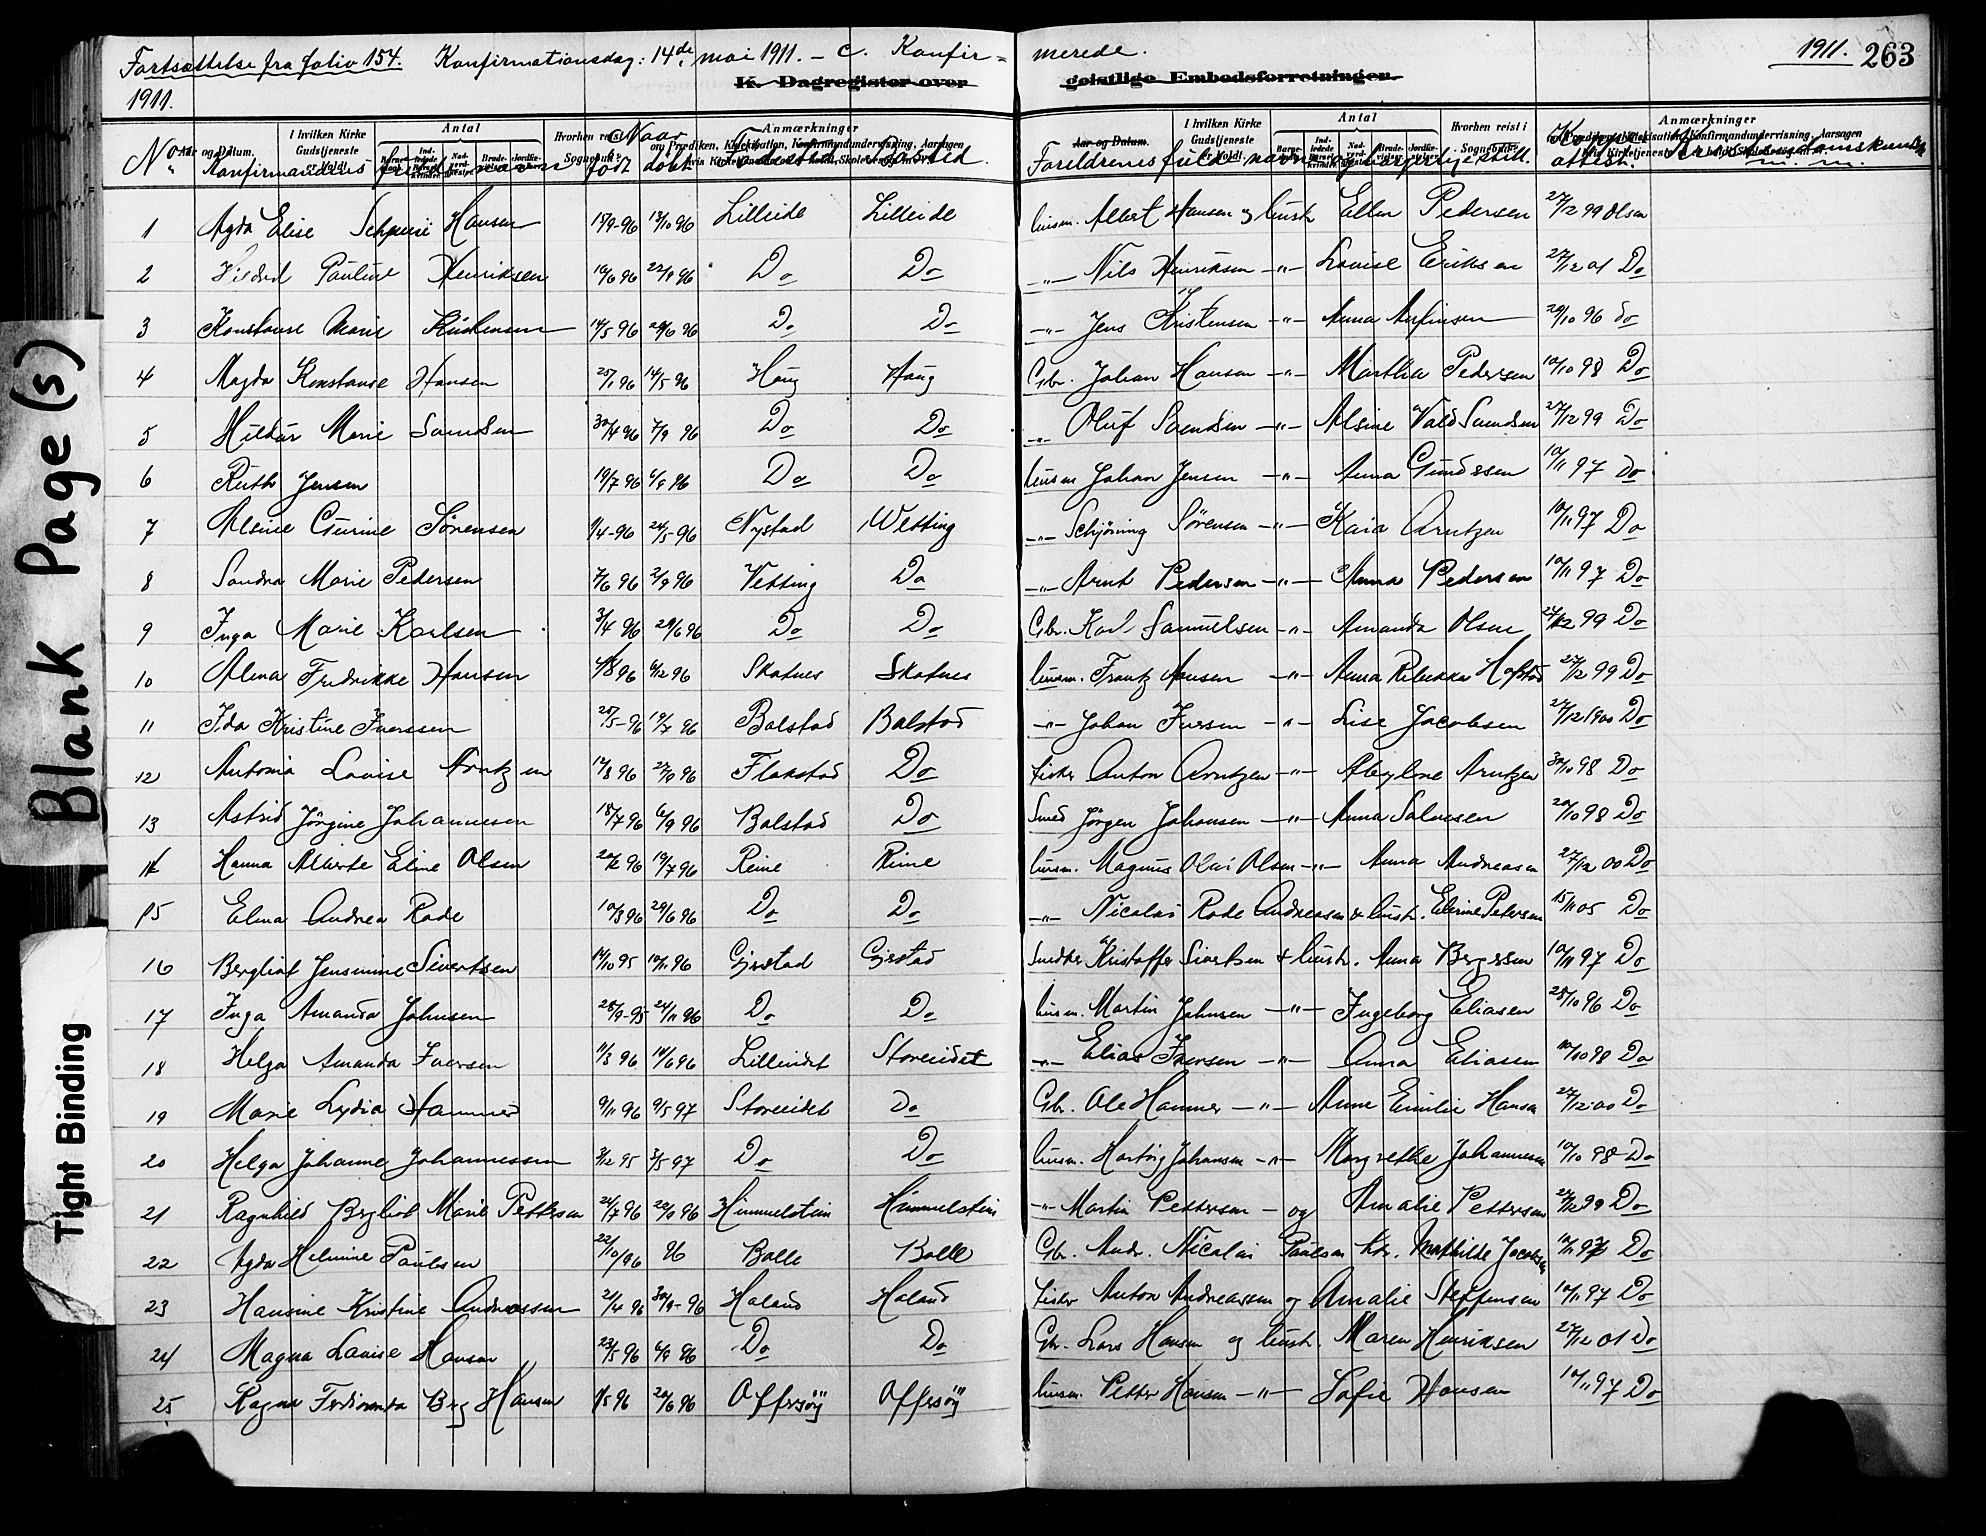 Fortsættelse fra folio 154. Konfirmationsdag: 14de mai 1911. – C. Konfir= merede. 1911. 263
1911.
K. Dagregister over geistlige Embedsforretninger.
Aar og Datum. I hvilken Kirke Gudstjeneste er holdt. Antal Hvorhen reist i Sognebud. Anmærkninger
No Konfirmandens fulde navn Naar født døbt Fødested Bosted. Forældrenes fulde navn og borgerlige still. Koppeattest.
1 Agda Elise Hansen 15/9-96 13/10 96 Lilleide Lilleide husm. Albert Hansen og hust. Ellen Pedersen 27/12 99 Olsen
2 Pauline Henriksen 16/6 96 22/8 96 Do Do –"– Nils Henriksen –"– Lovise Eriksen 27/12 01 Do
3 Konstanse Marie Kristensen 14/5 96 Do Do –"– Jens Kristensen –"– Anna Arfinsen 20/10 96 Do
4 Magda Konstanse Hansen 25/1 96 14/5 96 Haug Haug Gbr. Johan Hansen –"– Martha Pedersen 10/10 98 Do
5 Hildur Marie 30/4 96 7/9 96 Do Do –"– Oluf –"– Alsine 27/12 99 Do
6 Ruth Jensen 19/7 96 6/9 96 Do Do husm Johan Jensen –"– Anna 10/11 97 Do
7 Alsine Gurine Sørensen 1/4-96 24/5-96 Nystad Wetting –"– Schjöning Sørensen –"– Kaia Arntzen 10/11 97 Do
8 Sandra Marie Pedersen 7/6 96 2/9 96 Vetting Do –"– Arnt Pedersen –"– Anna Pedersen 10/11 97 Do
9 Inga Marie Karlsen 3/4 96 29/6 96 Do Do Gbr. Karl Samuelsen –"– Amanda Olsen 27/12 99 Do
10 Alma Fredrikke Hansen 4/8 96 6/12 96 Skatnes Skatnes husm. Frantz Hansen –"– Anna Rebekka 27/12 99 Do
11 Ida Kristine Iverssen 25/5-96 19/7 96 Balstad Balstad –"– Johan Iversen –"– Lise Jacobsen 27/12 1900 Do
12 Antonia Lovise Arntzen 14/8 96 27/10 96 Flakstad Do fisker Anton Arntzen –"– Arntzen 30/10 98 Do
13 Astrid Jörgine Johannesen 18/7 96 6/9 96 Balstad Do Smed Jørgen Johansen –"– Anna Salmesen 20/10 98 Do
14 Hanna Alberte Eline Olsen 20/2 96 19/7 96 Reine Reine husm. Magnus Olai Olsen –"– Anna Andreasen 27/12 00 Do
15 Elma Andrea Rode 10/3 96 29/6 96 Do Do –"– Nicolai Rode Andreassen & hust. Petersen 15/11 05 Do
16 Bergliot Jensmine Sivertsen 14/10 95 19/1 96 Gjerstad Gjerstad Snedker Kristoffer Sivertsen & hust. Anna Bergersen 10/11 97 Do
17 Inga Amanda Johnsen 28/9-95 24/11 96 Do Do husm. Martin Johnsen –"– Ingeborg Eliasen 28/10 96 Do
18 Helga Amanda Iversen 1/3 96 14/6 96 Lilleidet Storeidet –"– Elias Iversen –"– Anna Eliassen 10/10 98 Do
19 Marie Lydia Hammer 9/11 96 9/5 97 Storeidet Do Gbr. Ole Hammer –"– Anne Emilie Hansen 27/12 00 Do
20 Helga Johanne Johannessen 3/12 95 3/5 97 Do Do husm. Hartvig Johansen –"– Margrethe Johannesen 10/10 98 Do
21 Ragnhild Bergliot Marie Pettersen 24/7 96 20/9 96 Himmelstein Himmelstein –"– Martin Pettersen – og Amalie Pettersen 27/12 99 Do
22 Agda Helmine Paulsen 22/10/96 96 Bolle Bolle Gbr. Andr. Nicolai Paulsen Mathilde Jacobsen 10/11 97 Do
23 Hansine Kristine Andreassen 21/4 96 30/9-96 Holand Holand fisker Anton Andreassen og Amalie Steffensen 10/11 97 Do
24 Magna Lovise Hansen 23/5 96 6/9 96 Do Do Gbr. Lars Hansen og hust. Maren Henriksen 27/12 01 Do
25 Ragna Ferdinanda Berg Hansen 1/5 96 20/6 96 Offersöÿ Offersöÿ husm. Petter Hansen –"– Sofie Hansen 10/11 97 Do
Blank Page (s)
Tight Binding